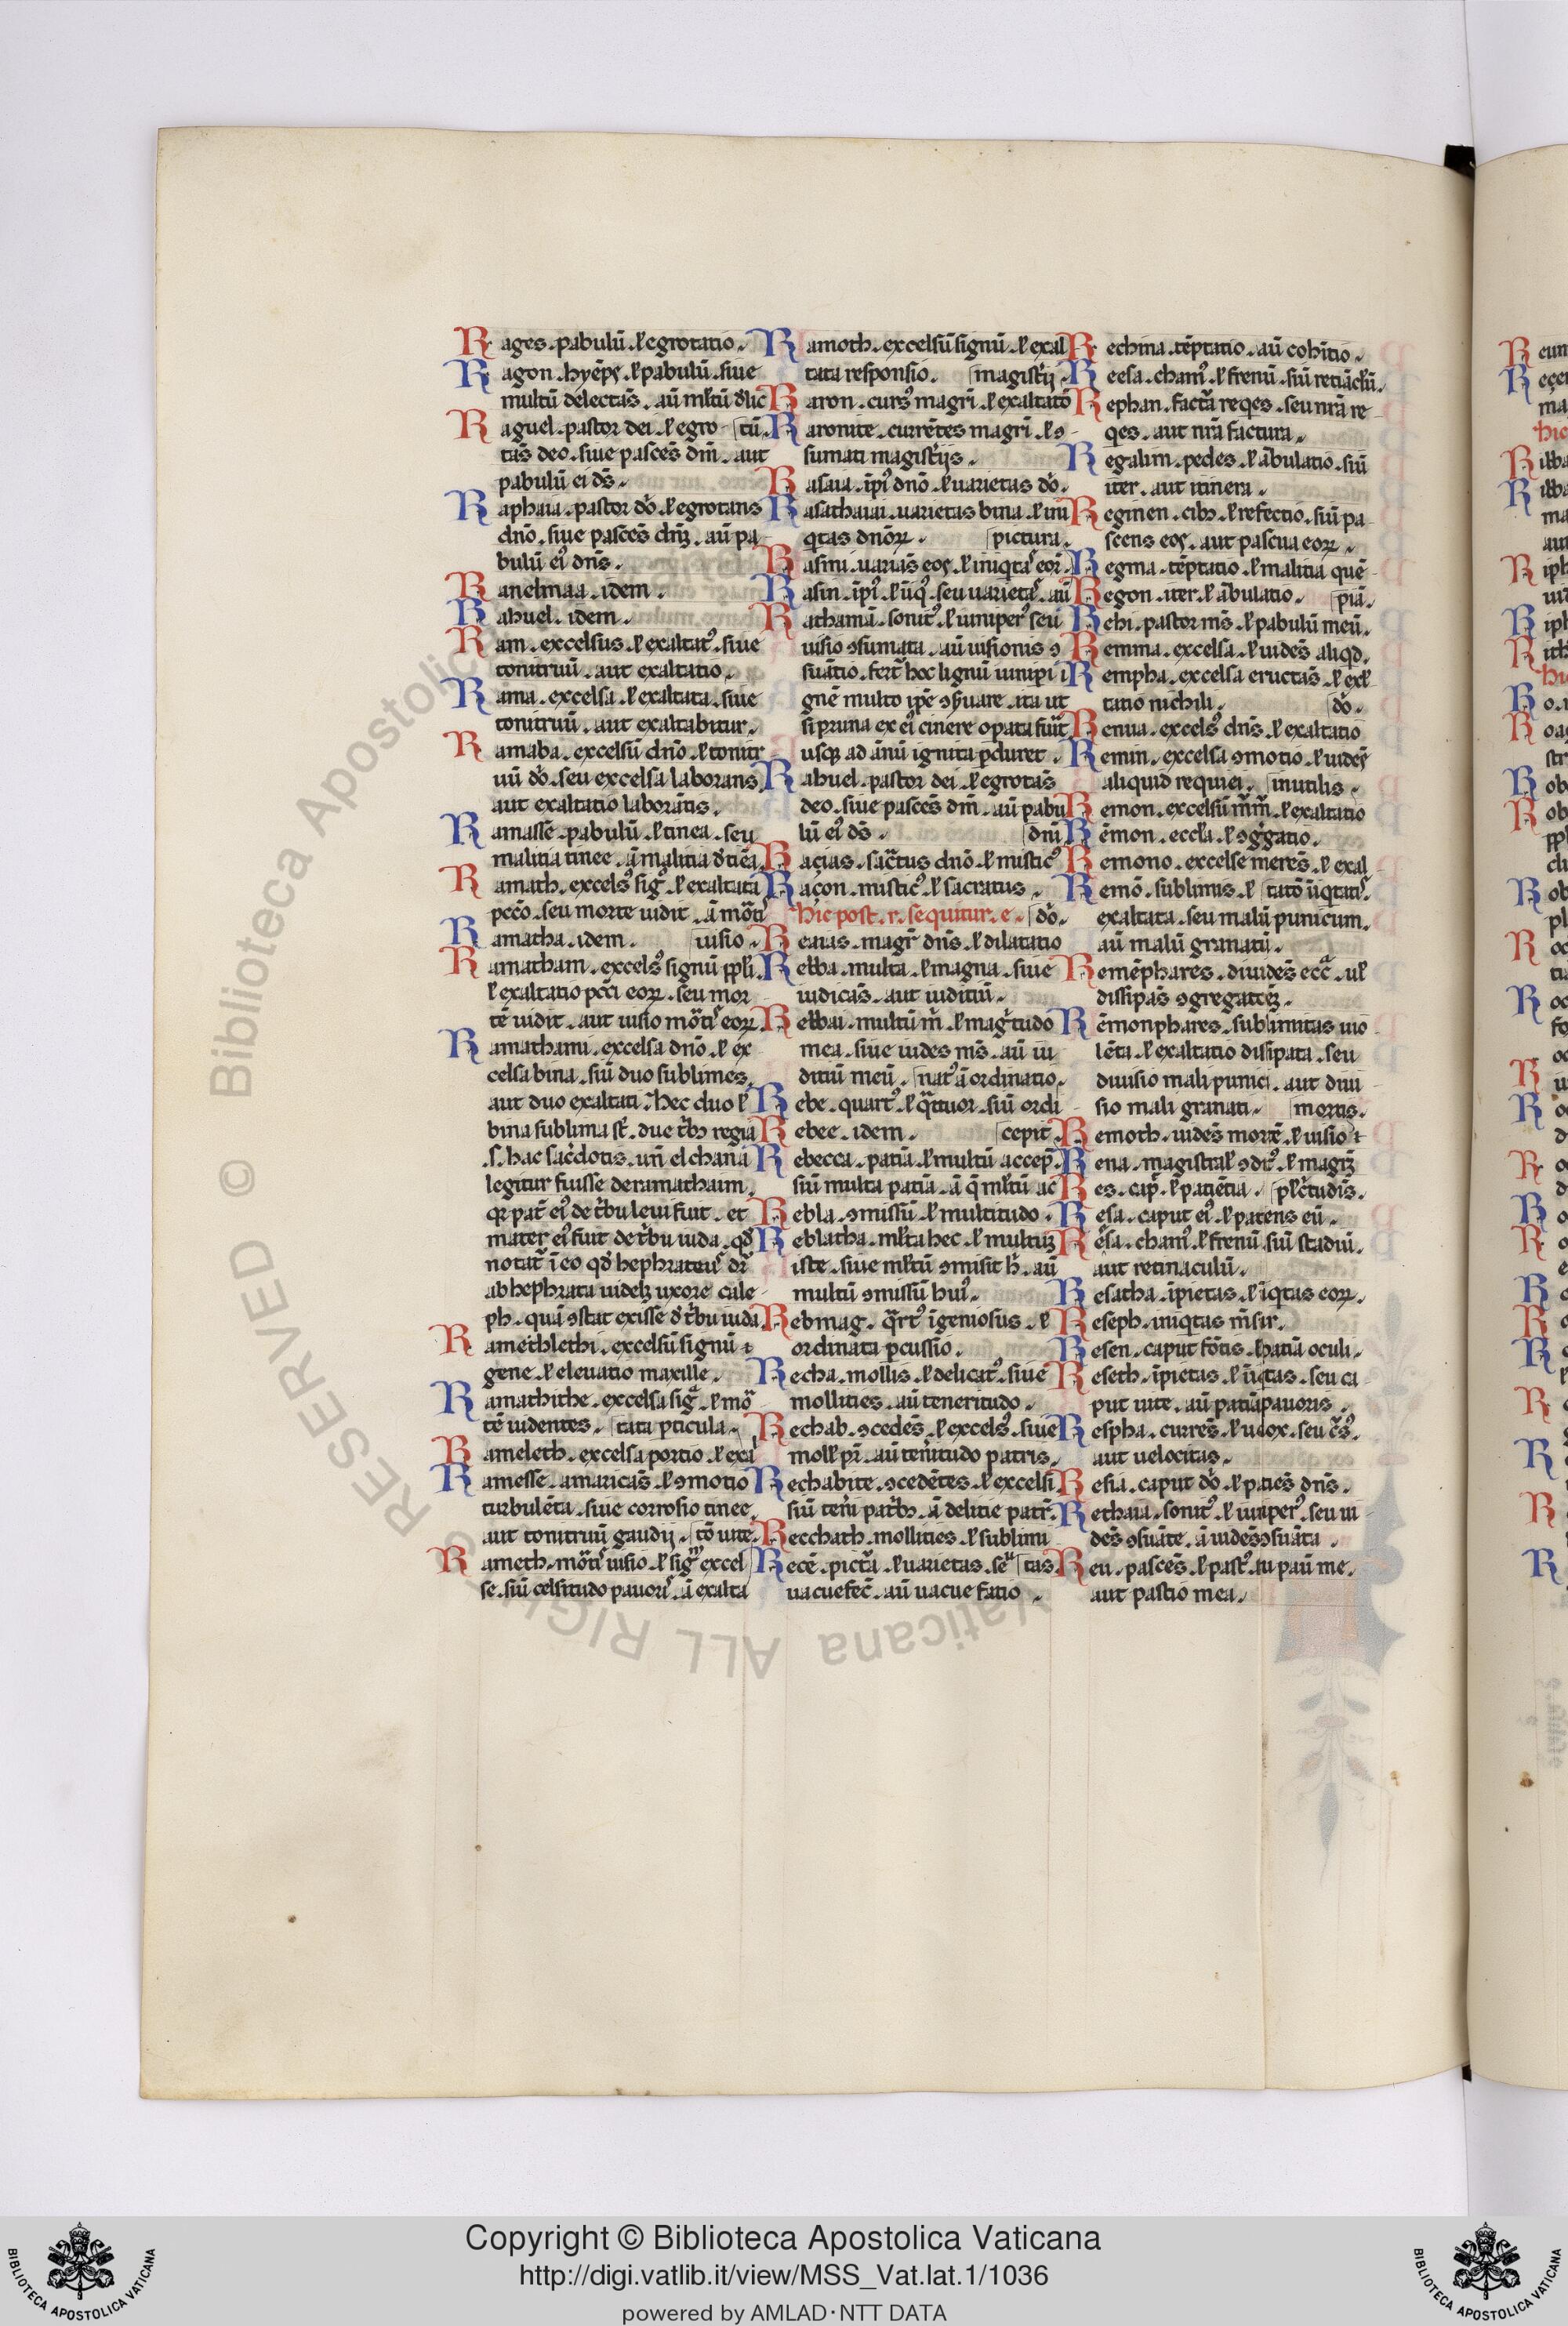 Rages. pabulū. ł egrotatio.
Ragon. hyēps. ł pabulū. siue
multū delectās. aū ml̄tū d̓lic
Raguel. pastor dei. ł egro tū.
tās deo. siue pascēs dm̄. aut
pabulū ei dš.
Raphaia. pastor do᷒. ł egrotans
dnō. siue pascēs dn̄ȝ. aū pa
bulū ei᷒ dn̄s.
Ranelmaa. idem.
Rahuel. idem.
Ram. excelsus. ł exaltat᷒. siue
tonitruū. aut exaltatio.
Rama. excelsa. ł exaltata. siue
tonitruū. aut exaltabitur.
Ramaba. excelsū dnō. ł tonitr
uū do᷒. seu excelsa laborans.
aut exaltatio laborātis.
Ramasse. pabulū. ł tinea. seu
malitia tinee. ā malitia d̓ tiēa.
Ramath. excels᷒ sig᷒. ł exaltata
pccō. seu morte uidit. ā mōti᷒
Ramatha. idem. uisio.
Ramatham. excels᷒ signū ppl̄i.
ł exaltatio pcc̄i eoꝝ. seu mor
tē uidit. aut uisio mōti᷒ eoꝝ.
Ramathami. excelsa dnō. ł ex
celsa bina. siū duo sublimes.
aut duo exaltati. hec duo ł
bina sublimia st̄. due t̓bȝ regia
.s. hac sac̓dotis. un̄ elchana
legitur fuisse de ramathaim.
qꝛ pat̄ ei᷒ de t̓bu leui fuit. et
mater ei᷒ fuit de t̓bu iuda. qd̓
notat᷒ ī eo qd̓ hephrateu᷒ dr̄
ab hephrata uidelȝ uxore cale
ph. quā ꝯstat exisse d̓ t̓bu iuda.
Ramethlethi. excelsū signū ⁊
gene. ł eleuatio maxille.
Ramathithe. excelsa sig̓. ł mo᷒
tē uidentes. tata pticula.
Rameleth. excelsa portio. ł exa
Ramesse. amaricās. ł ꝯmotio
turbulēta. siue corrosio tinee.
aut tonitruū gaudij. tō uite.
Rameth. mōti᷒ uisio. ł sig᷒ excel
se. siū celsitudo pauori᷒. ā exalta
Ramoth. excelsū signū. ł exal
tata responsio. magist̓ij.
Raron. curs᷒ magr̄i. ł exaltatō
Raronite. currētes magr̄i. ł ꝯ
sumati magist̓ijs.
Rasaia. īpi᷒ dnō. ł uarietas do᷒.
Rasathaiai. uarietas bina. ł ini
q̓tas dnōꝝ. pictura.
Rasini. uariās eos. ł iniq̓ta᷒ eoꝝ.
Rasin. īpi᷒. ł iīq᷒. seu uarieta᷒. aū
Rathamā. sonit᷒. ł iuniper᷒ seu
uisio ꝯsumata. aū uisionis ꝯ
suātio. fert᷒ hoc lignū iunipi i
gnē multo tp̄e ꝯs̓uare. ita ut
si pruna ex ei᷒ cinere opata fu͛it
usqȝ ad ānū ignita pduret.
Rahuel. pastor dei. ł egrotās
deo. siue pascēs dm̄. aū pabu
lū ei᷒ dš. dn̄i
Raçias. sāctus dnō. ł mistic᷒
Raçon. mistic᷒. ł sacratus.
Hic post. r. sequitur. e. do᷒.
Reaias. magr̄ dn̄s. ł dilatatio
Rebba. multa. ł magna. siue
iudicās. aut iuditiū.
Rebbai. multū m̄. ł mag̓tudo
mea. siue iudes ms̄. aū iu
ditiū meū. nat᷒ ā ordinatio.
Rebe. quart᷒. ł q̓ttuor. siū ordi
Rebee. idem. cepit.
Rebecca. patiā. ł multū accep̄.
siū multa patiā. ā q̄ ml̄tū ac
Rebla. ꝯmissū. ł multitudo.
Reblatha. ml̄ta hec. ł multuȝ
iste. siue ml̄tū ꝯmisit h̄. aū
multū ꝯmissū hui᷒.
Rebmag. q̓rt᷒ īgeniosus. ł
ordinata pcussio.
Recha. mollis. ł delicat᷒. siue
mollities. aū teneritudo.
Rechab. ꝯcedēs. ł excels᷒. siue
moll̄ pr̄. aū ten̓itudo patris.
Rechabite. ꝯcedētes. ł excelsi
siū ten̓i pat̓bȝ. ā delitie patr̄.
Recchath. mollities. ł sublimi
Recē. pict̓a. ł uarietas. seu tas.
uacuefec̄. aū uacue fatio.
Rechina. tēptatio. aū cohītio.
Reesa. cham᷒. ł frenū. siū retiāclū.
Rephan. fact̄a req̓es. seu nr̄a re
q̓es. aut nr̄a factura.
Regalim. pedes. ł ābulatio. siū
iter. aut itinera.
Reginen. cibȝ. ł refectio. siū pa
scens eos. aut pascua eoꝝ.
Regma. tēptatio. ł malitia quē
Regon. iter. ł ābulatio. piā.
Rehi. pastor ms̄. ł pabulū meū.
Remma. excelsa. ł uidēs aliq̓d.
Rempha. excelsa eructās. ł exł
tatio nichili. do᷒.
Renua. excels᷒ dn̄s. ł exaltatio
Remin. excelsa ꝯmotio. ł uidēs
aliquid requiei. inutilis.
Remon. excelsū m̄m̄. ł exaltatio
Rēmon. eccl̄a. ł ꝯg̓gatio.
Remono. excelse merēs. ł exal
Remō. sublimis. ł tatō iīq̓tati᷒.
exaltata. seu malū punicum.
aū malū granatū.
Remēphares. diuidēs ecc̄. ul̄
dissipās ꝯgregatōȝ.
Rēmonphares. sublimitas uio
lēta. ł exaltatio disipata. seu
diuisio mali punici. aut diui
sio mali granati. mortis.
Remoth. uidēs mortē. ł uisio ⁊
Rena. magistra᷒ł ꝯdi᷒. ł magr̄ȝ
Res. cap᷒. ł patiētia. pl̄c̓tudis̄.
Resa. caput ei᷒. ł patens eū.
Rēsa. cham᷒. ł frenū. siū stadiū.
aut retinaculū.
Resatha. īpietas. ł īiq̓tas eoꝝ.
Reseph. iniq̓tas m̄sur̄.
Resen. caput fōtis. ł patiā oculi.
Reseth. īpietas. ł iīq̓tas. seu ca
put uite. aū patiā pauoris.
Respha. currēs. ł uelox. seu c̄s᷒.
aut uelocitas.
Resia. caput do᷒. ł patiēs dn̄s.
Rethaia. sonit᷒. ł iuniper᷒. seu ui
dēs ꝯsuāte. ā uidēs ꝯsuāta.
Reu. pascēs. ł past᷒. siu paū me.
aut pastio mea.
Copyright © Biblioteca Apostolica Vaticana
http://digi.vatlib.it/view/MSS_Vat.lat.1/1036
powered by AMLAD·NTT DATA
BIBLIOTECA APOSTOLICA VATICANA
BIBLIOTECA APOSTOLICA VATICANA